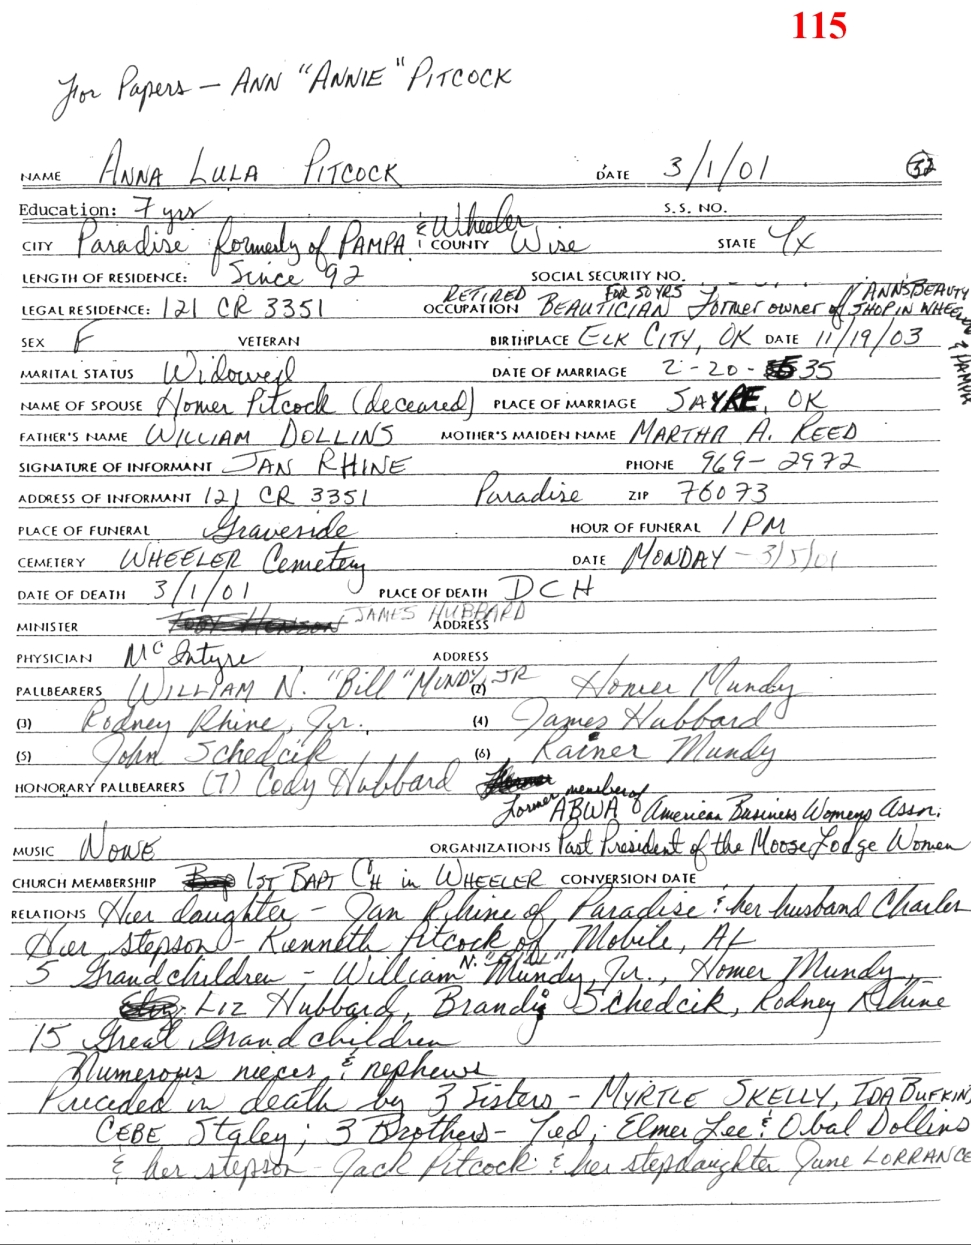 115
For Papers — ANN "ANNIE" PITCOCK
NAME ANNA LULA PITCOCK DATE 3/1/01 32
Education: 7 yrs S.S. NO.
CITY Paradise formerly of PAMPA & Wheeler COUNTY Wise STATE Tx
LENGTH OF RESIDENCE: Since 92 SOCIAL SECURITY NO.
LEGAL RESIDENCE: 121 CR 3351 OCCUPATION RETIRED BEAUTICIAN FOR 50 YRS Former owner of ANN'S BEAUTY SHOP IN WHEELER & PAMPA
SEX F VETERAN BIRTHPLACE ELK CITY, OK DATE 11/19/03
MARITAL STATUS Widowed DATE OF MARRIAGE 2-20-35
NAME OF SPOUSE Homer Pitcock (deceased) PLACE OF MARRIAGE SAYRE, OK
FATHER'S NAME WILLIAM DOLLINS MOTHER'S MAIDEN NAME MARTHA A. REED
SIGNATURE OF INFORMANT JAN RHINE PHONE 969-2972
ADDRESS OF INFORMANT 121 CR 3351 Paradise ZIP 76073
PLACE OF FUNERAL Graveside HOUR OF FUNERAL 1 PM
CEMETERY WHEELER Cemetery DATE MONDAY - 3/5/01
DATE OF DEATH 3/1/01 PLACE OF DEATH DCH
MINISTER JAMES HUBBARD ADDRESS
PHYSICIAN McIntyre ADDRESS
PALLBEARERS WILLIAM N. "Bill" MUNDY, JR (2) Homer Mundy
(3) Rodney Rhine, Jr. (4) James Hubbard
(5) John Schedcik (6) Rainer Mundy
HONORARY PALLBEARERS (7) Cody Hubbard
Former member of ABWA American Business Womens Assn.
MUSIC NONE ORGANIZATIONS Past President of the Moose Lodge Women
CHURCH MEMBERSHIP 1ST BAPT CH in WHEELER CONVERSION DATE
RELATIONS Her daughter - Jan Rhine of Paradise & her husband Charles
Her stepson - Kenneth Pitcock of Mobile, AL
5 Grandchildren - William N. "Bill" Mundy, Jr., Homer Mundy,
Liz Hubbard, Brandi Schedcik, Rodney Rhine
15 Great Grandchildren
Numerous nieces & nephews
Preceded in death by 3 Sisters - MYRTLE SKELLY, IDA BUFKIN,
CEBE Staley; 3 Brothers - Ted, Elmer Lee & Obal Dollins
& her stepson - Jack Pitcock & her stepdaughter June LORRANCE